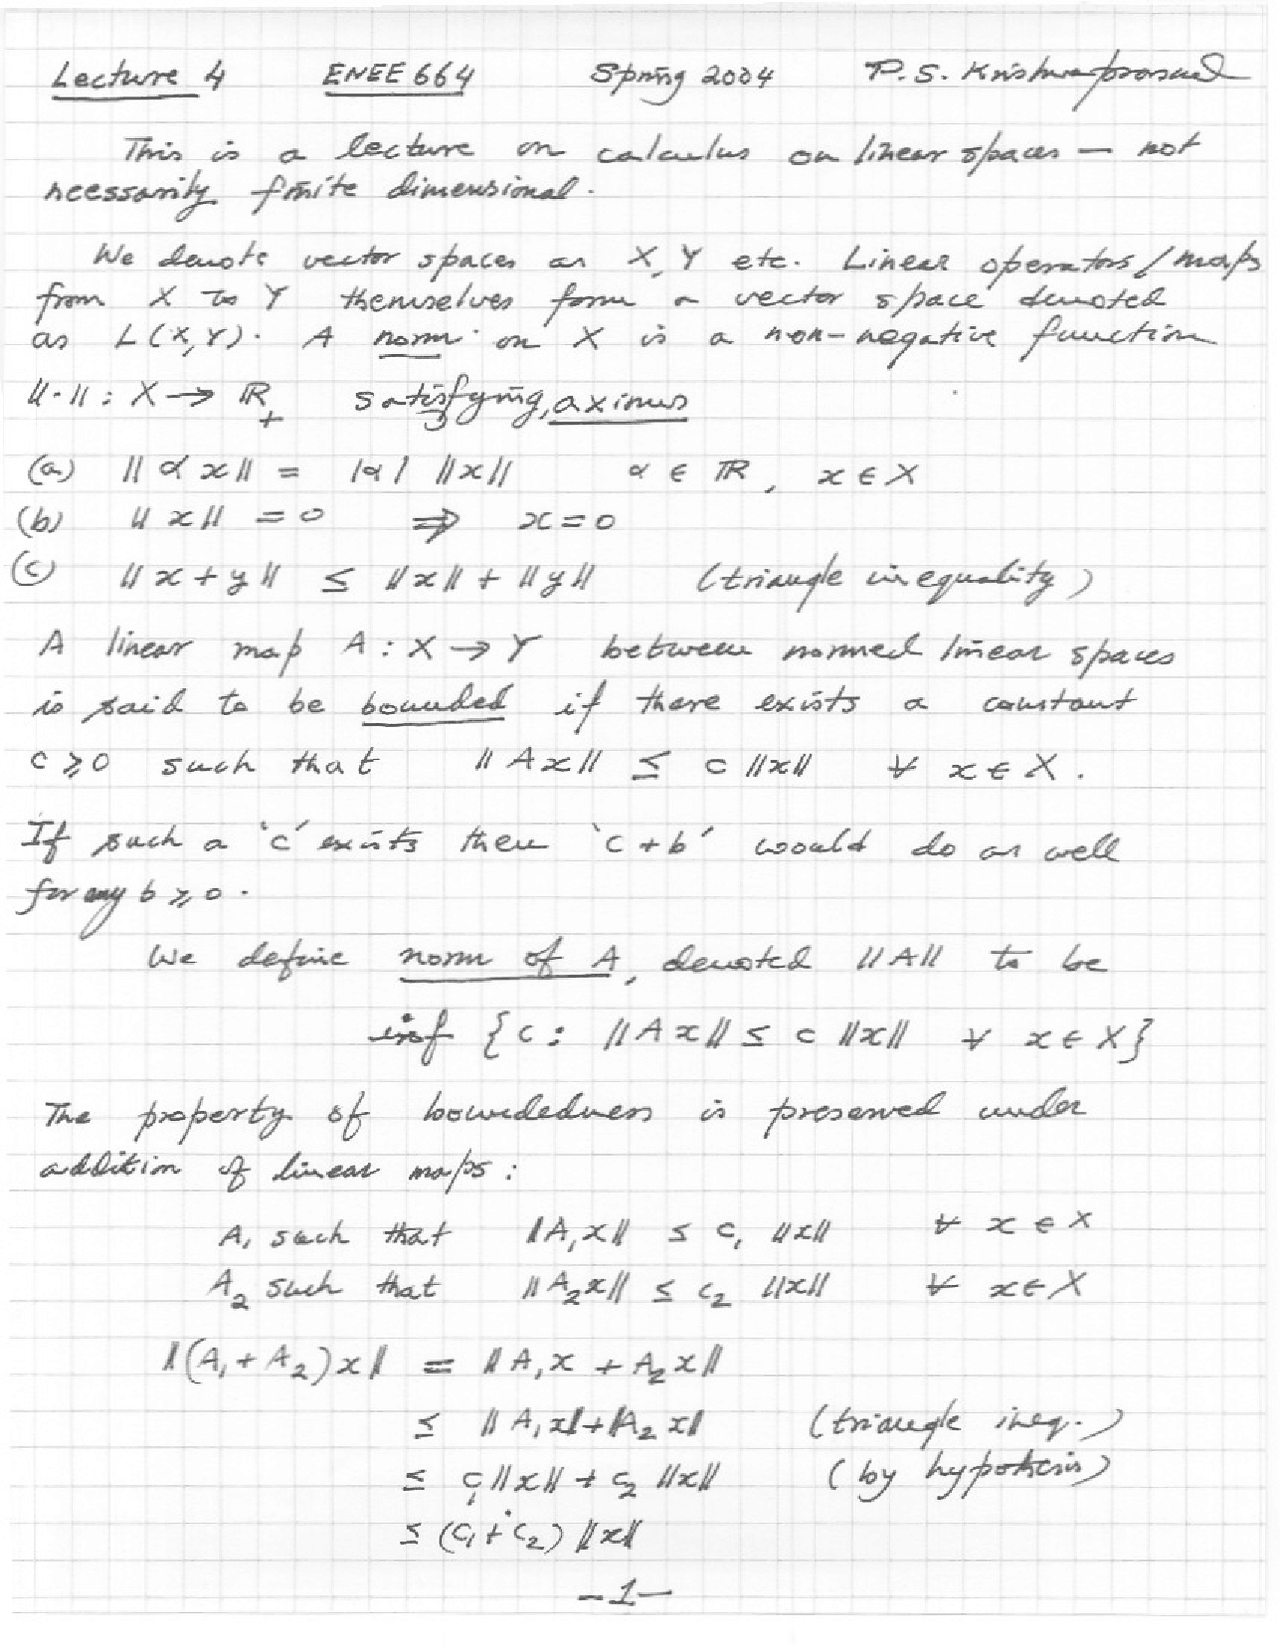 Lecture 4 ENEE 664 Spring 2004 P. S. Krishnaprasad
This is a lecture on calculus on linear spaces — not
necessarily finite dimensional.
We denote vector spaces as X, Y etc. Linear operators/maps
from X to Y themselves form a vector space denoted
as L(X,Y). A norm on X is a non-negative function
||·|| : X → ℝ₊ satisfying axioms
(a) ||αx|| = |α| ||x|| α ∈ ℝ, x ∈ X
(b) ||x|| = 0 ⇒ x = 0
(c) ||x + y|| ≤ ||x|| + ||y|| (triangle inequality)
A linear map A : X → Y between normed linear spaces
is said to be bounded if there exists a constant
c ≥ 0 such that ||Ax|| ≤ c ||x|| ∀ x ∈ X.
If such a 'c' exists then 'c + b' would do as well
for any b ≥ 0.
We define norm of A, denoted ||A|| to be
inf {c : ||Ax|| ≤ c ||x|| ∀ x ∈ X}
The property of boundedness is preserved under
addition of linear maps :
A₁ such that ||A₁x|| ≤ c₁ ||x|| ∀ x ∈ X
A₂ such that ||A₂x|| ≤ c₂ ||x|| ∀ x ∈ X
||(A₁ + A₂)x|| = ||A₁x + A₂x||
≤ ||A₁x|| + ||A₂x|| (triangle ineq.)
≤ c₁||x|| + c₂ ||x|| (by hypothesis)
≤ (c₁ + c₂) ||x||
—1—